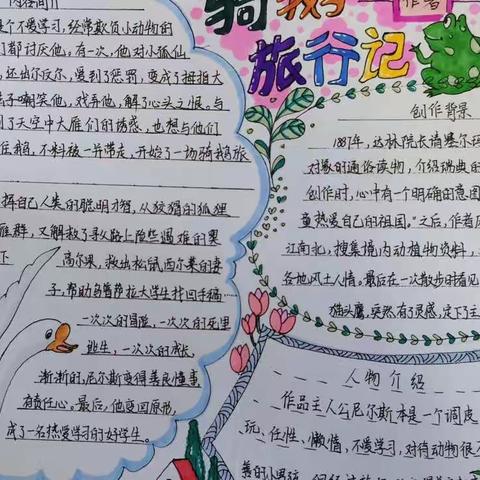 骑鹅
旅行记
作者
内容简介
个不爱学习，经常欺负小动物的
们都讨厌他，有一次，他对小狐仙
，还出尔反尔，遭到了惩罚，变成了拇指大
法子嘲笑他，戏弄他，解了心头之恨。与
到了天空中大雁们的诱惑，也想与他们
住鹅，不料被一片带走，开始了一场骑鹅旅
挥自己人类的聪明才智，从狡猾的狐狸
雁群，又解救了寻人路上险些遇难的黑
下
高尔果，救出松鼠西尔莱的妻
子，帮助乌普萨拉大学生找回手稿
一次次的冒险，一次次的死里
逃生，一次次的成长，
渐渐的，尼尔斯变得善良懂事，
有责任心。最后，他变回原形，
成了一名热爱学习的好学生。
创作背景
1887年，达林院长请塞尔玛
对象的通俗读物，介绍瑞典的
创作时，心中有一个明确的意图
童热爱自己的祖国。”之后，作者历
江南北，搜集境内动植物资料，
各地风土人情。最后在一次散步时看见
猫头鹰，突然有了灵感，定下了主
人物介绍
作品主人公尼尔斯本是一个调皮
玩、任性、懒惰，不爱学习，对待动物很不
善的小男孩